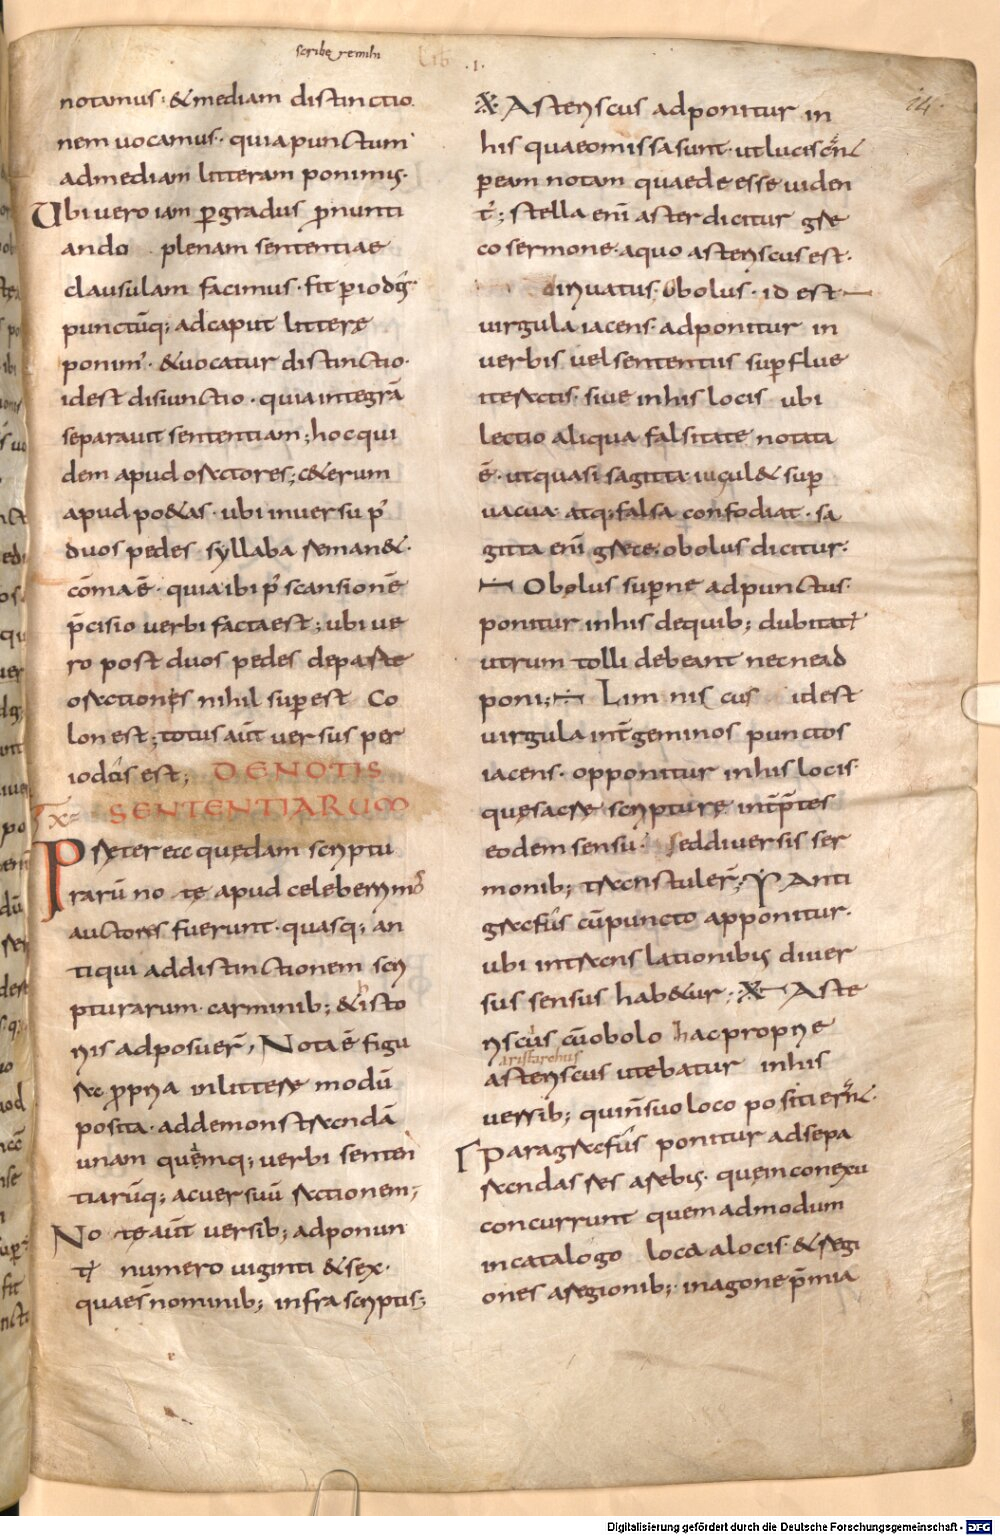 scribe & emihi
Lib .I.
14.
notamus· & mediam distinctio
nem uocamus· quia punctum
ad mediam litteram ponimis·
Ubi uero iam ꝑ gradus p̄nunti
ando plenam sententiae
clausulam facimus· fit ꝑiodꝰ·
punctūq; ad caput litterę
ponim'· & uocatur distinctio·
id est disiunctio· quia integrā
separauit sententiam; hoc qui
dem apud oratores; c&erum
apud po&as· ubi in uersu p'
duos pedes syllaba reman&·
cōma ē· quia ibi p' scansionē
p̄cisio uerbi facta est; ubi ue
ro post duos pedes de parte
orationis nihil suꝑest Co
lon est; totus aūt uersus per
iodus est; DE NOTIS
SENTENTIARUM
Preterea quędam scriptu
rarū notę apud celeberrimos
auctores fuerunt· quasq; an
tiqui ad distinctionem scri
pturarum· carminib; & isto
riis adposuer̄; Nota ē figu
ra ꝓpria in litterę modū
posita· ad demonstrandā
unam quēmq; uerbi senten
tiarūq; ac uersuū rationem;
Notę aūt uersib; adponun
t' numero uiginti & sex·
quae s̄ nominib; infra scriptis;
※ Asteriscus adponitur in
his quae omissa sunt· ut lucisc̄n̄t
ꝑ eam notam quae deesse uiden
t'; stella enī aster dicitur gre
co sermone· a quo asteriscus est·
diriuatus; Obolus· id est —
uirgula iacens· adponitur in
uerbis uel sententiis suꝑflue
iteratis· siue in his locis ubi
lectio aliqua falsitate notata
ē· ut quasi sagitta iugul& suꝑ
uacua atq; falsa confodiat· sa
gitta enī grece· obolus dicitur·
∸ Obolus suꝑne adpunctus·
ponitur in his de quib; dubitat'
utrum tolli debeant nec ne ad
poni; ÷ Limniscus id est
uirgula int̄ geminos punctos
iacens· opponitur in his locis·
quę sacrę scripturę int̄p̄tes
eodem sensu· sed diuersis ser
monib; transtuler̄; Anti
grafus cū puncto apponitur·
ubi in translationibus diuer
sus sensus hab&ur; ※— Aste
riscus cū obolo hac proprie
aristarchus
asteriscus utebatur in his
uersib; qui n̄ suo loco positi er̄n̄t·
Γ Paragrafus ponitur ad sepa
randas res a rebus· quę in conexu
concurrunt quemadmodum
in catalogo loca a locis· & regi
ones a regionib; in agone p̄mia
Digitalisierung gefördert durch die Deutsche Forschungsgemeinschaft - DFG